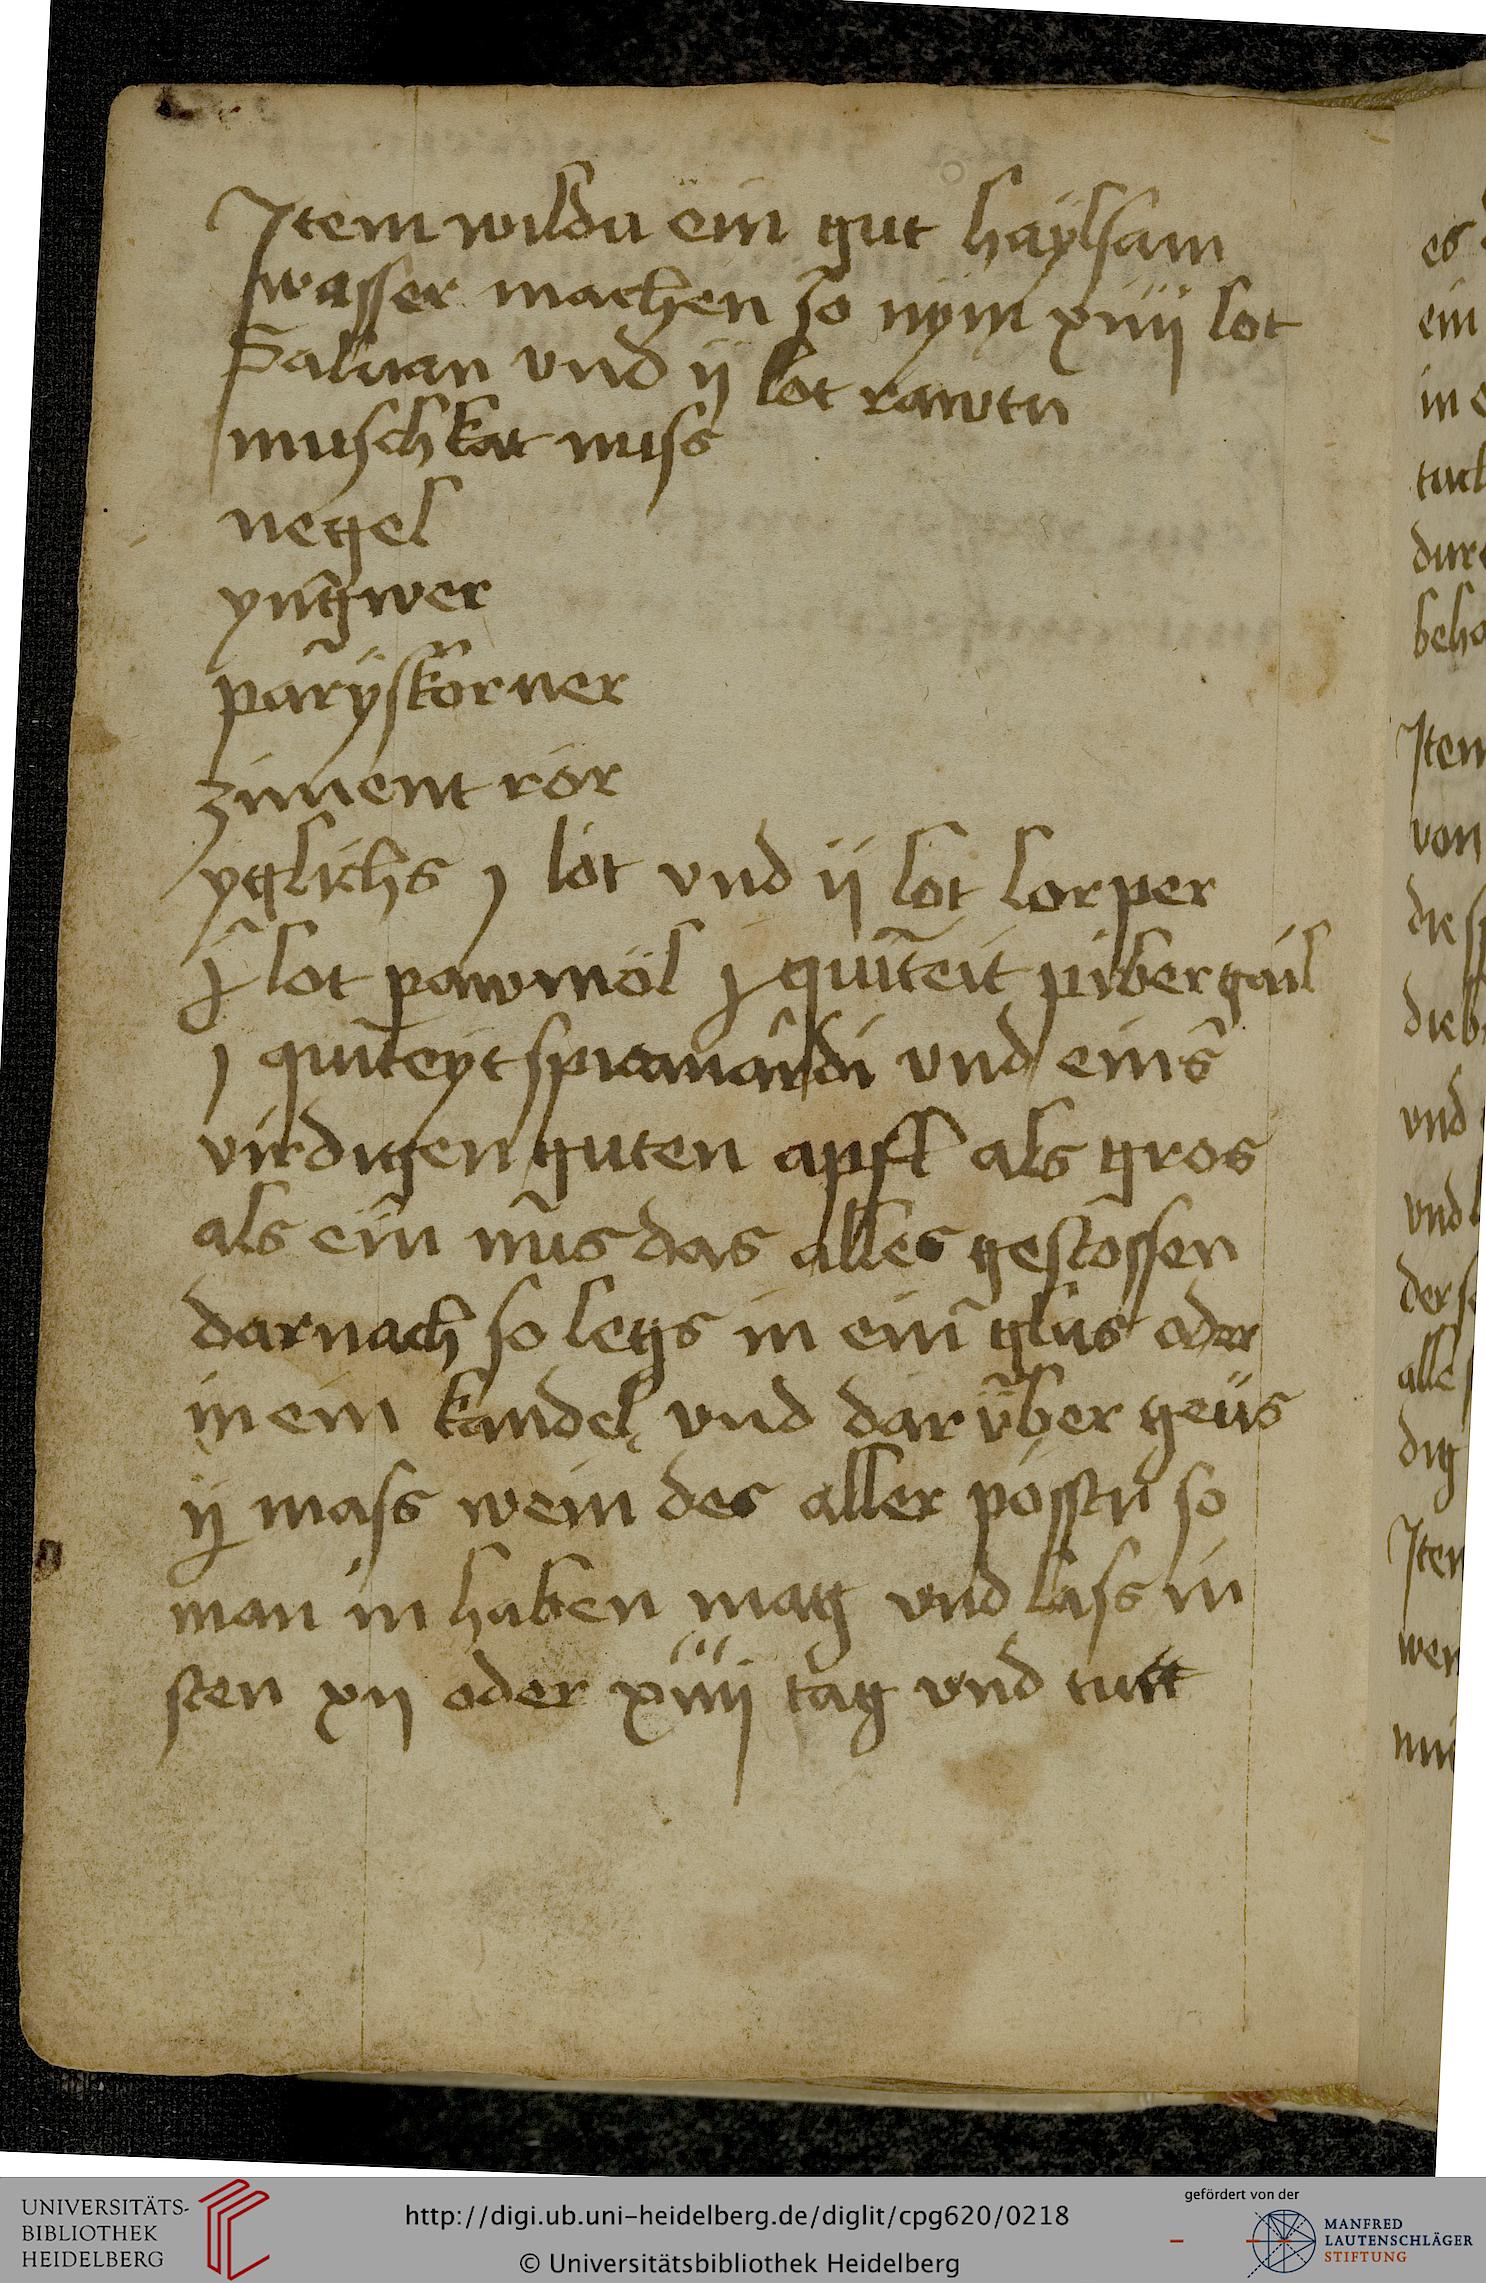 Item wildu ein gut haÿlsam
wasser machen so nÿm xiiij lot
Saluan vnd ij lot rawtn
muschkat nuss
negel
yngwer
parÿskorner
ziment rör
yglichs j lot vnd ij lot lorper
j lot pawmöl j quiteit pibergail
j quiteÿt spicanardi vnd eins
virdigen guten apfl als gros
als ein nus das alles gestossen
darnach so legs in ein glas oder
in ein kandel vnd darüber geüs
ij mass wein des aller pösstn so
man in haben mag vnd lass in
sten xij oder xiiij tag vnd tutt
es
ein
in
tuch
dur
beho
Item
von
die
die
vnd
vnd
der
alle
dig
Item
wer
UNIVERSITÄTS-
BIBLIOTHEK
HEIDELBERG
http://digi.ub.uni-heidelberg.de/diglit/cpg620/0218
© Universitätsbibliothek Heidelberg
gefördert von der
MANFRED
LAUTENSCHLÄGER
STIFTUNG